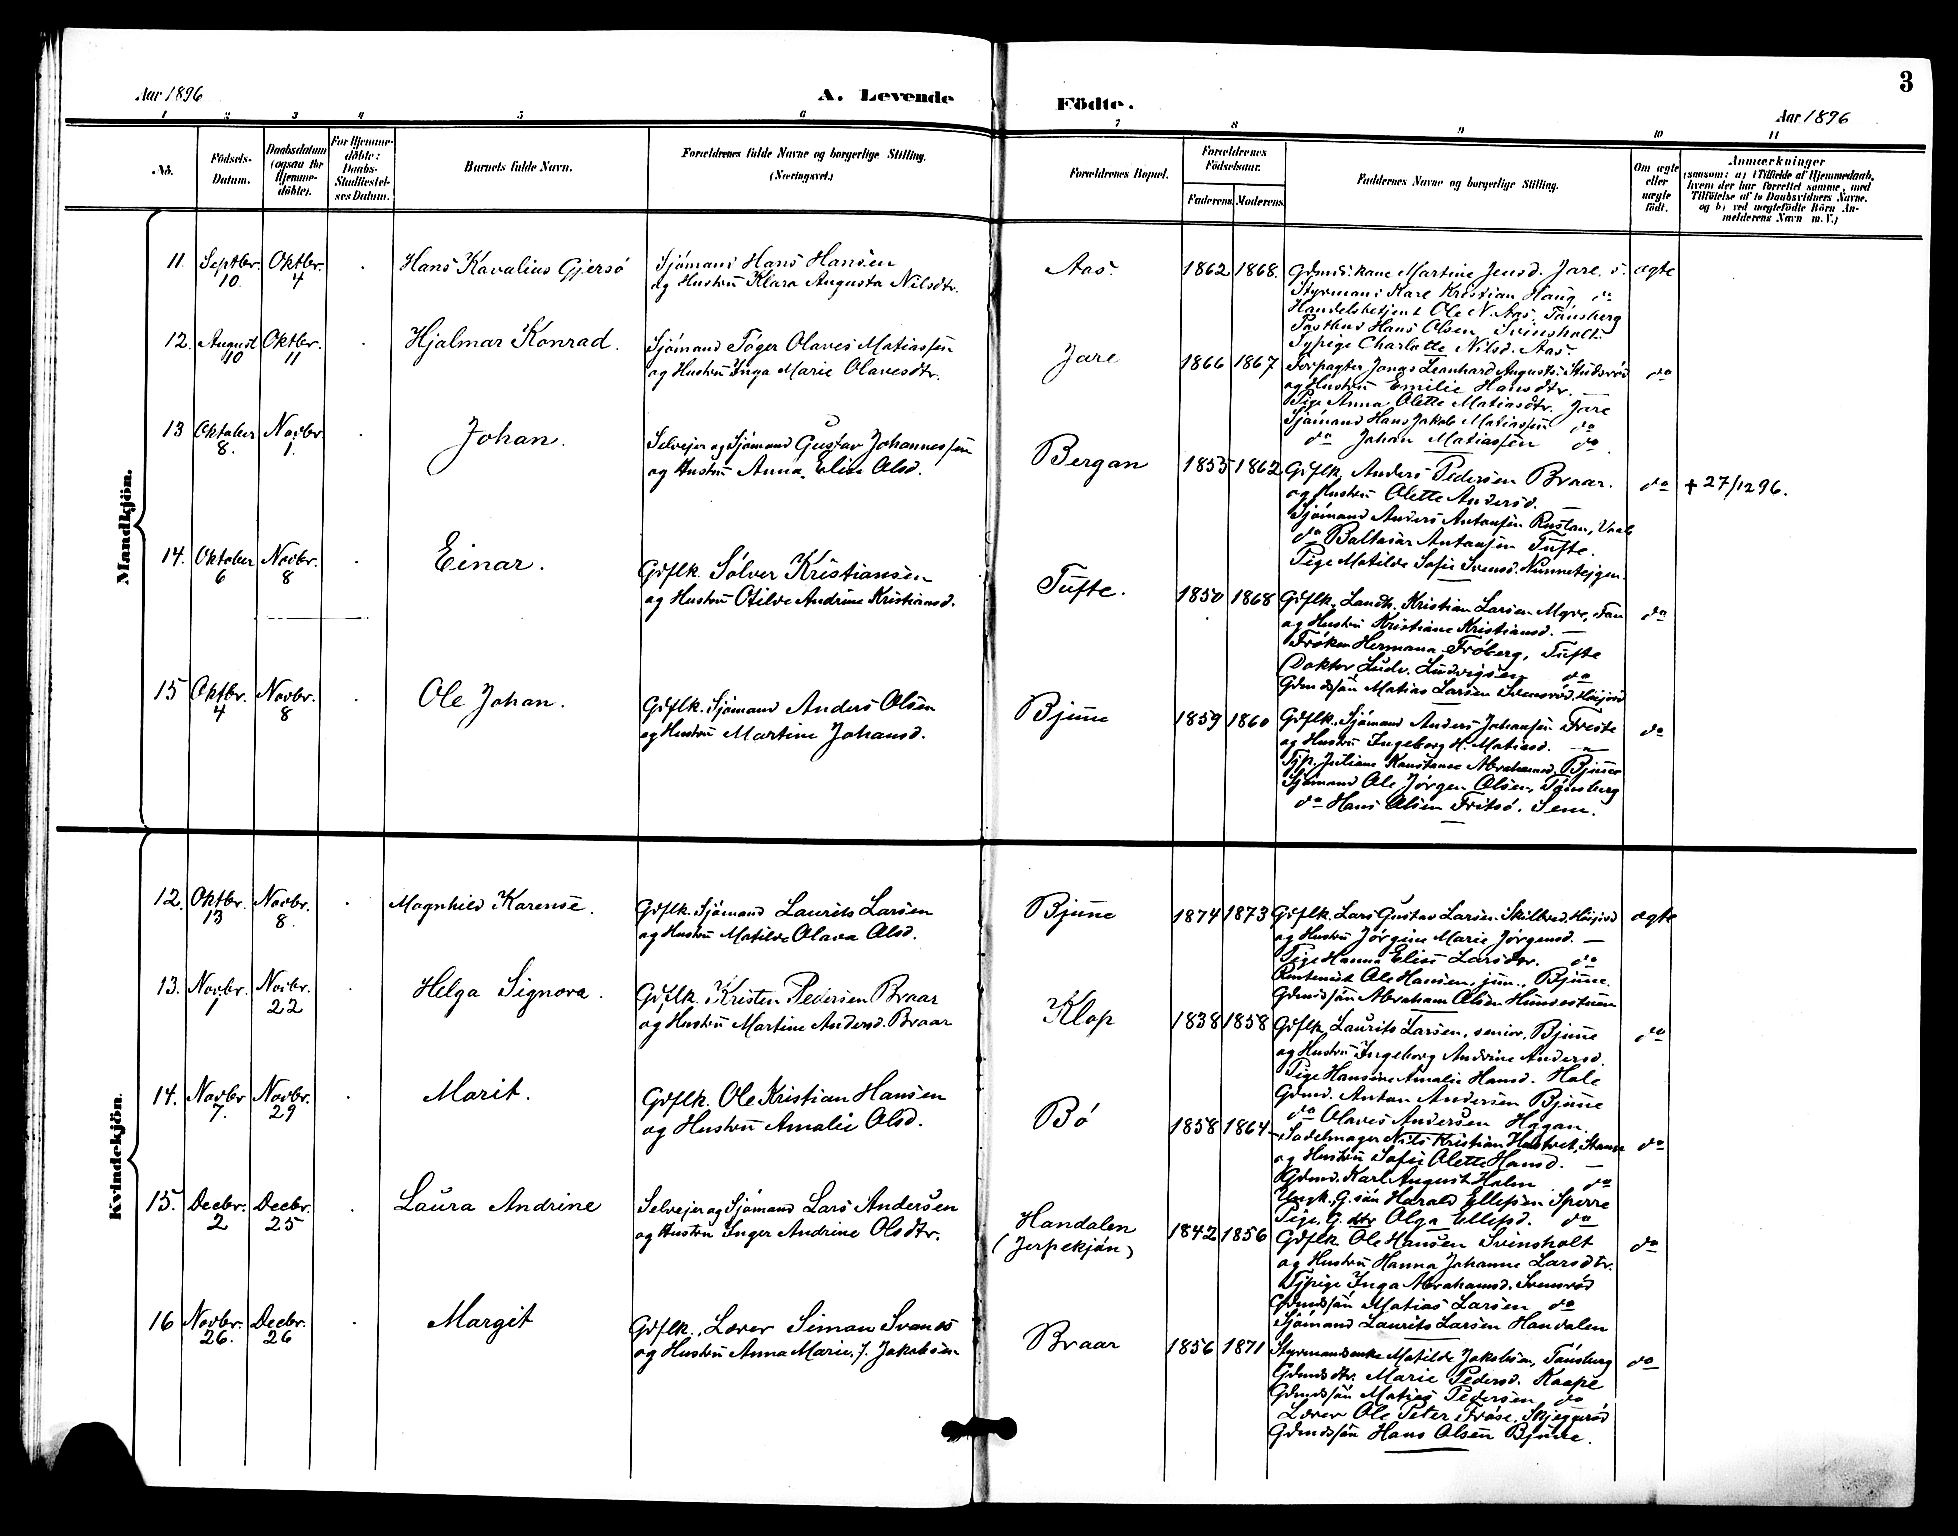 3
Aar 1896
A. Levende Födte.
Aar 1896
1 2 3 4 5 6 7 8 9 10 11
No.
Födsels-Datum.
Daabsdatum (ogsaa for Hjemme-döbte).
For Hjemme-döbte: Daabs-Stadfæstel-ses Datum.
Barnets fulde Navn.
Forældrenes fulde Navne og borgerlige Stilling.
(Næringsvei.)
Forældrenes Bopæl.
Forældrenes Födselsaar.
Faderens. Moderens.
Faddernes Navne og borgerlige Stilling.
Om ægte eller uægte födt.
Anmærkninger
(saasom: a) i Tilfælde af Hjemmedaab,
hvem der har forrettet samme, med
Tilföielse af to Daabsvidners Navne,
og b) ved uægtefödte Börn An-
melderens Navn m. V.)
Mandkjön.
11. Septbr. 10. Oktbr. 4 Hans Kavalius Gjersö
Sjömand Hans Hansen
og Hustru Klara Augusta Nilsdtr.
Aas. 1862 1868.
Gdmds.kone Martine Jensd. Jare. ægte
Styrmand Kare Kristian Haug, do
Handelsbetjent Ole N. Aas, Tönsberg
Postbud Hans Olsen Svinsholt.
Typige Charlotte Nilsd. Aas.
12. August 10 Oktbr. 11 Hjalmar Konrad.
Sjömand Töger Olaves Matiassen
og Hustru Inga Marie Olavesdtr.
Jare 1866 1867
Forpagter Jonas Leonhard Augusts. do
og Hustru Emilie Hansdtr. —
Pige Anna Olette Matiasdtr. Jare
Sjömand Hans Jakob Matiassen do
do Johan Matiassen do
13 Oktober 8. Novbr. 1. Johan.
Selveier og Sjömand Gustav Johannessen
og Hustru Anna Elise Olsd.
Bergan 1855 1862
Gdflk. Anders Pedersen Braar. do + 27/12 96.
og Hustru Olette Andersd. —
Sjömand Anders Antonsen Rustan,
do Baltasar Antonsen Tufte.
Pige Matilde Sofie Svensd.
14. Oktober 6 Novbr. 8 Einar.
Gdflk. Sölver Kristiansen
og Hustru Otilde Andrine Kristiansd.
Tufte. 1850 1868
Gdflk. Landh. Kristian Larsen Myre, do
og Hustru Kristiane Kristiansd. —
Fröken Hermana Fröberg, Tufte
Doktor Ludv. Ludvigsen do
Gdmdssön Matias Larsen Svensröd,
15 Oktbr. 4 Novbr. 8 Ole Johan.
Gdflk. Sjömand Anders Olsen
og Hustru Martine Johansd.
Bjune 1859 1860
Gdflk. Sjömand Anders Johansen Freste do
og Hustru Ingeborg H. Matiasd. —
Tjp. Juliane Konstanse Abrahamsd. Bjune
Sjömand Ole Jörgen Olsen, Tönsberg
do Hans Olsen Fritsö. Sem.
Kvindekjön.
12. Oktbr. 13 Novbr. 8. Magnhild Karense.
Gdflk. Sjömand Laurits Larsen
og Hustru Matilde Olava Olsd.
Bjune 1874 1873
Gdflk. Lars Gustav Larsen ægte
og Hustru Jörgine Marie Jörgensd. —
Pige Hanna Elise Larsdtr. do
Rentenist Ole Hansen jun., Bjune.
Gdmdssön Abraham Olsen
13. Novbr. 1 Novbr. 22 Helga Signora.
Gdflk. Kristen Pedersen Braar
og Hustru Martine Andersd. Braar
Klop 1838 1858
Gdflk. Laurits Larsen, senior, Bjune do
og Hustru Ingeborg Andrine Andersd.
Pige Hansine Amalie Hansd. Hale
Gdmd. Anton Andersen Bjune
do Olaves Andersen Hagan.
14. Novbr 7. Novbr. 29 Marit.
Gdflk. Ole Kristian Hansen
og Hustru Amalie Olsd.
Bö 1858 1864
Sadelmager Nils Kristian do
og Hustru Sofie Olette Hansd. —
Gdmd. Karl August Holm do
Ungk. G.sön Harald Ellefsen Sperre
Pige, G.dtr Olga Ellefsd. do
15. Decbr. 2 Decbr. 25 Laura Andrine
Selveier og Sjömand Lars Andersen
og Hustru Inger Andrine Olsdtr.
Handalen
(Jerpekjön) 1842 1856
Gdflk Ole Hansen Svinsholt do
og Hustru Hanna Johanne Larsdtr.
Tjpige Inga Abrahamsd. Svensröd
Gdmdssön Matias Larsen do
Sjömand Laurits Larsen Handalen
16 Novbr. 26. Decbr. 26 Margit
Gdflk. Lærer Simon Svanes
og Hustru Anna Marie J. Jakobsen
Braar 1856 1871
Styrmandsenke Matilde Jakobsen, Tönsberg do
Gdmdsdtr. Marie Pedersd. Kaape
Gdmdssön Matias Pedersen do
Lærer Ole Peter Fröse, Skjeggeröd
Gdmdssön Hans Olsen Bjune.